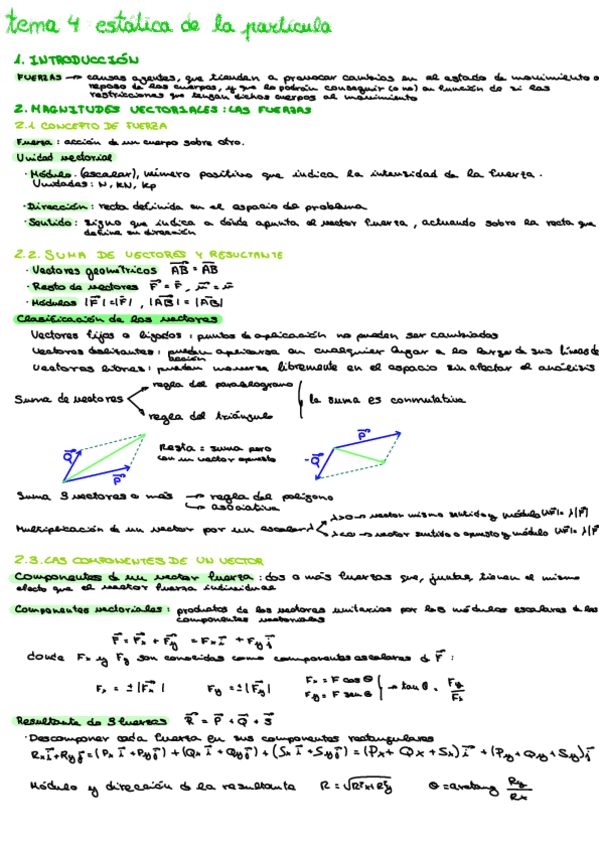 tema 4 estática de la partícula
1. INTRODUCCIÓN
FUERZAS → causas agentes, que tienden a provocar cambios en el estado de movimiento o
reposo de los cuerpos, y que lo podrán conseguir (o no) en función de si las
restricciones que tengan dichos cuerpos al movimiento
2. MAGNITUDES VECTORIALES: LAS FUERZAS
2.1 CONCEPTO DE FUERZA
Fuerza: acción de un cuerpo sobre otro.
Unidad vectorial
· Módulo. (escalar), número positivo que indica la intensidad de la fuerza.
Unidades: N, KN, Kp
· Dirección: recta definida en el espacio de problema
· Sentido: signo que indica a dónde apunta el vector fuerza, actuando sobre la recta que
define su dirección
2.2. SUMA DE VECTORES Y RESULTANTE
· Vectores geométricos \overrightarrow{AB} = \overline{AB}
· Resto de vectores \vec{F} = \bar{F}, \vec{u} = \bar{u}
· Módulos |\vec{F}| = |\bar{F}|, |\overrightarrow{AB}| = |\overline{AB}|
Clasificación de los vectores
Vectores fijos o ligados: puntos de aplicación no pueden ser cambiados
Vectores deslizantes: pueden aplicarse en cualquier lugar a lo largo de sus líneas de
acción
Vectores libres: pueden moverse libremente en el espacio sin afectar el análisis
Suma de vectores
regla del paralelogramo
regla del triángulo
la suma es conmutativa
\vec{Q}
\vec{P}
Resta = suma pero
con un vector opuesto
\vec{P}
-\vec{Q}
Suma 3 vectores o más → regla del polígono
→ asociativa
Multiplicación de un vector por un escalar λ
λ>0 → vector mismo sentido y módulo |λ\vec{F}| = λ|\vec{F}|
λ<0 → vector sentido opuesto y módulo |λ\vec{F}| = λ|\vec{F}|
2.3. LAS COMPONENTES DE UN VECTOR
Componentes de un vector fuerza: dos o más fuerzas que, juntas, tienen el mismo
efecto que el vector fuerza individual
Componentes vectoriales: productos de los vectores unitarios por los módulos escalares de las
componentes vectoriales
\vec{F} = \vec{F}x + \vec{F}y = Fx \vec{i} + Fy \vec{j}
donde Fx y Fy son conocidas como componentes escalares d \vec{F}:
Fx = ±|\vec{F}x| Fy = ±|\vec{F}y| Fx = F cos θ
Fy = F sen θ → tan θ = Fy/Fx
Resultante de 3 fuerzas \vec{R} = \vec{P} + \vec{Q} + \vec{S}
· Descomponer cada fuerza en sus componentes rectangulares
Rx\vec{i} + Ry\vec{j} = (Px \vec{i} + Py\vec{j}) + (Qx \vec{i} + Qy\vec{j}) + (Sx \vec{i} + Sy\vec{j}) = (Px + Qx + Sx)\vec{i} + (Py + Qy + Sy)\vec{j}
Módulo y dirección d la resultante R = √R²x + R²y θ = arctang Ry/Rx